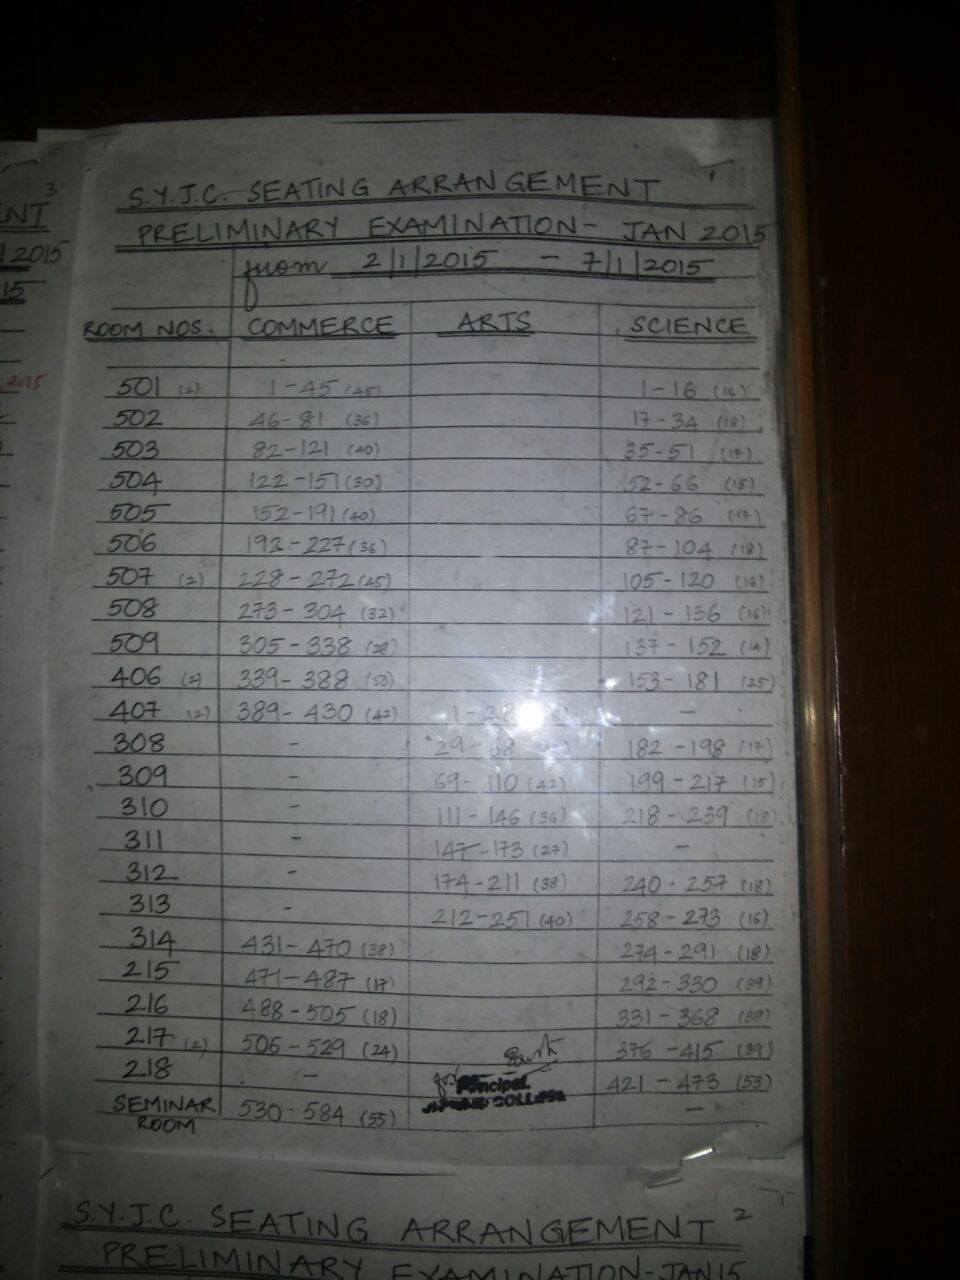 3
ENT
1 2015
15
2015
1
S.Y.J.C. SEATING ARRANGEMENT
PRELIMINARY EXAMINATION - JAN 2015
from 2/1/2015 - 7/1/2015
ROOM NOS. COMMERCE ARTS SCIENCE
501 (2) 1-45 (45) 1-16 (16)
502 46-81 (36) 17-34 (18)
503 82-121 (40) 35-51 (17)
504 122-151 (30) 52-66 (15)
505 152-191 (40) 67-86 (17)
506 192-227 (36) 87-104 (18)
507 (2) 228-272 (45) 105-120 (16)
508 273-304 (32) 121-136 (16)
509 305-338 (28) 137-152 (14)
406 (2) 339-388 (50) 153-181 (25)
407 (2) 389-430 (42) -
308 - 29-68 182-198 (17)
309 - 69-110 (42) 199-217 (15)
310 - 111-146 (36) 218-239 (18)
311 - 147-173 (27) -
312 - 174-211 (38) 240-257 (18)
313 - 212-251 (40) 258-273 (16)
314 431-470 (38) 274-291 (18)
215 471-487 (17) 292-330 (39)
216 488-505 (18) 331-368
217 (2) 506-529 (24) 376-415 (39)
218 - 421-473 (53)
Principal.
SEMINAR ROOM 530-584 (55) -
2
S.Y.J.C. SEATING ARRANGEMENT
PRELIMINARY EXAMINATION-JAN 15